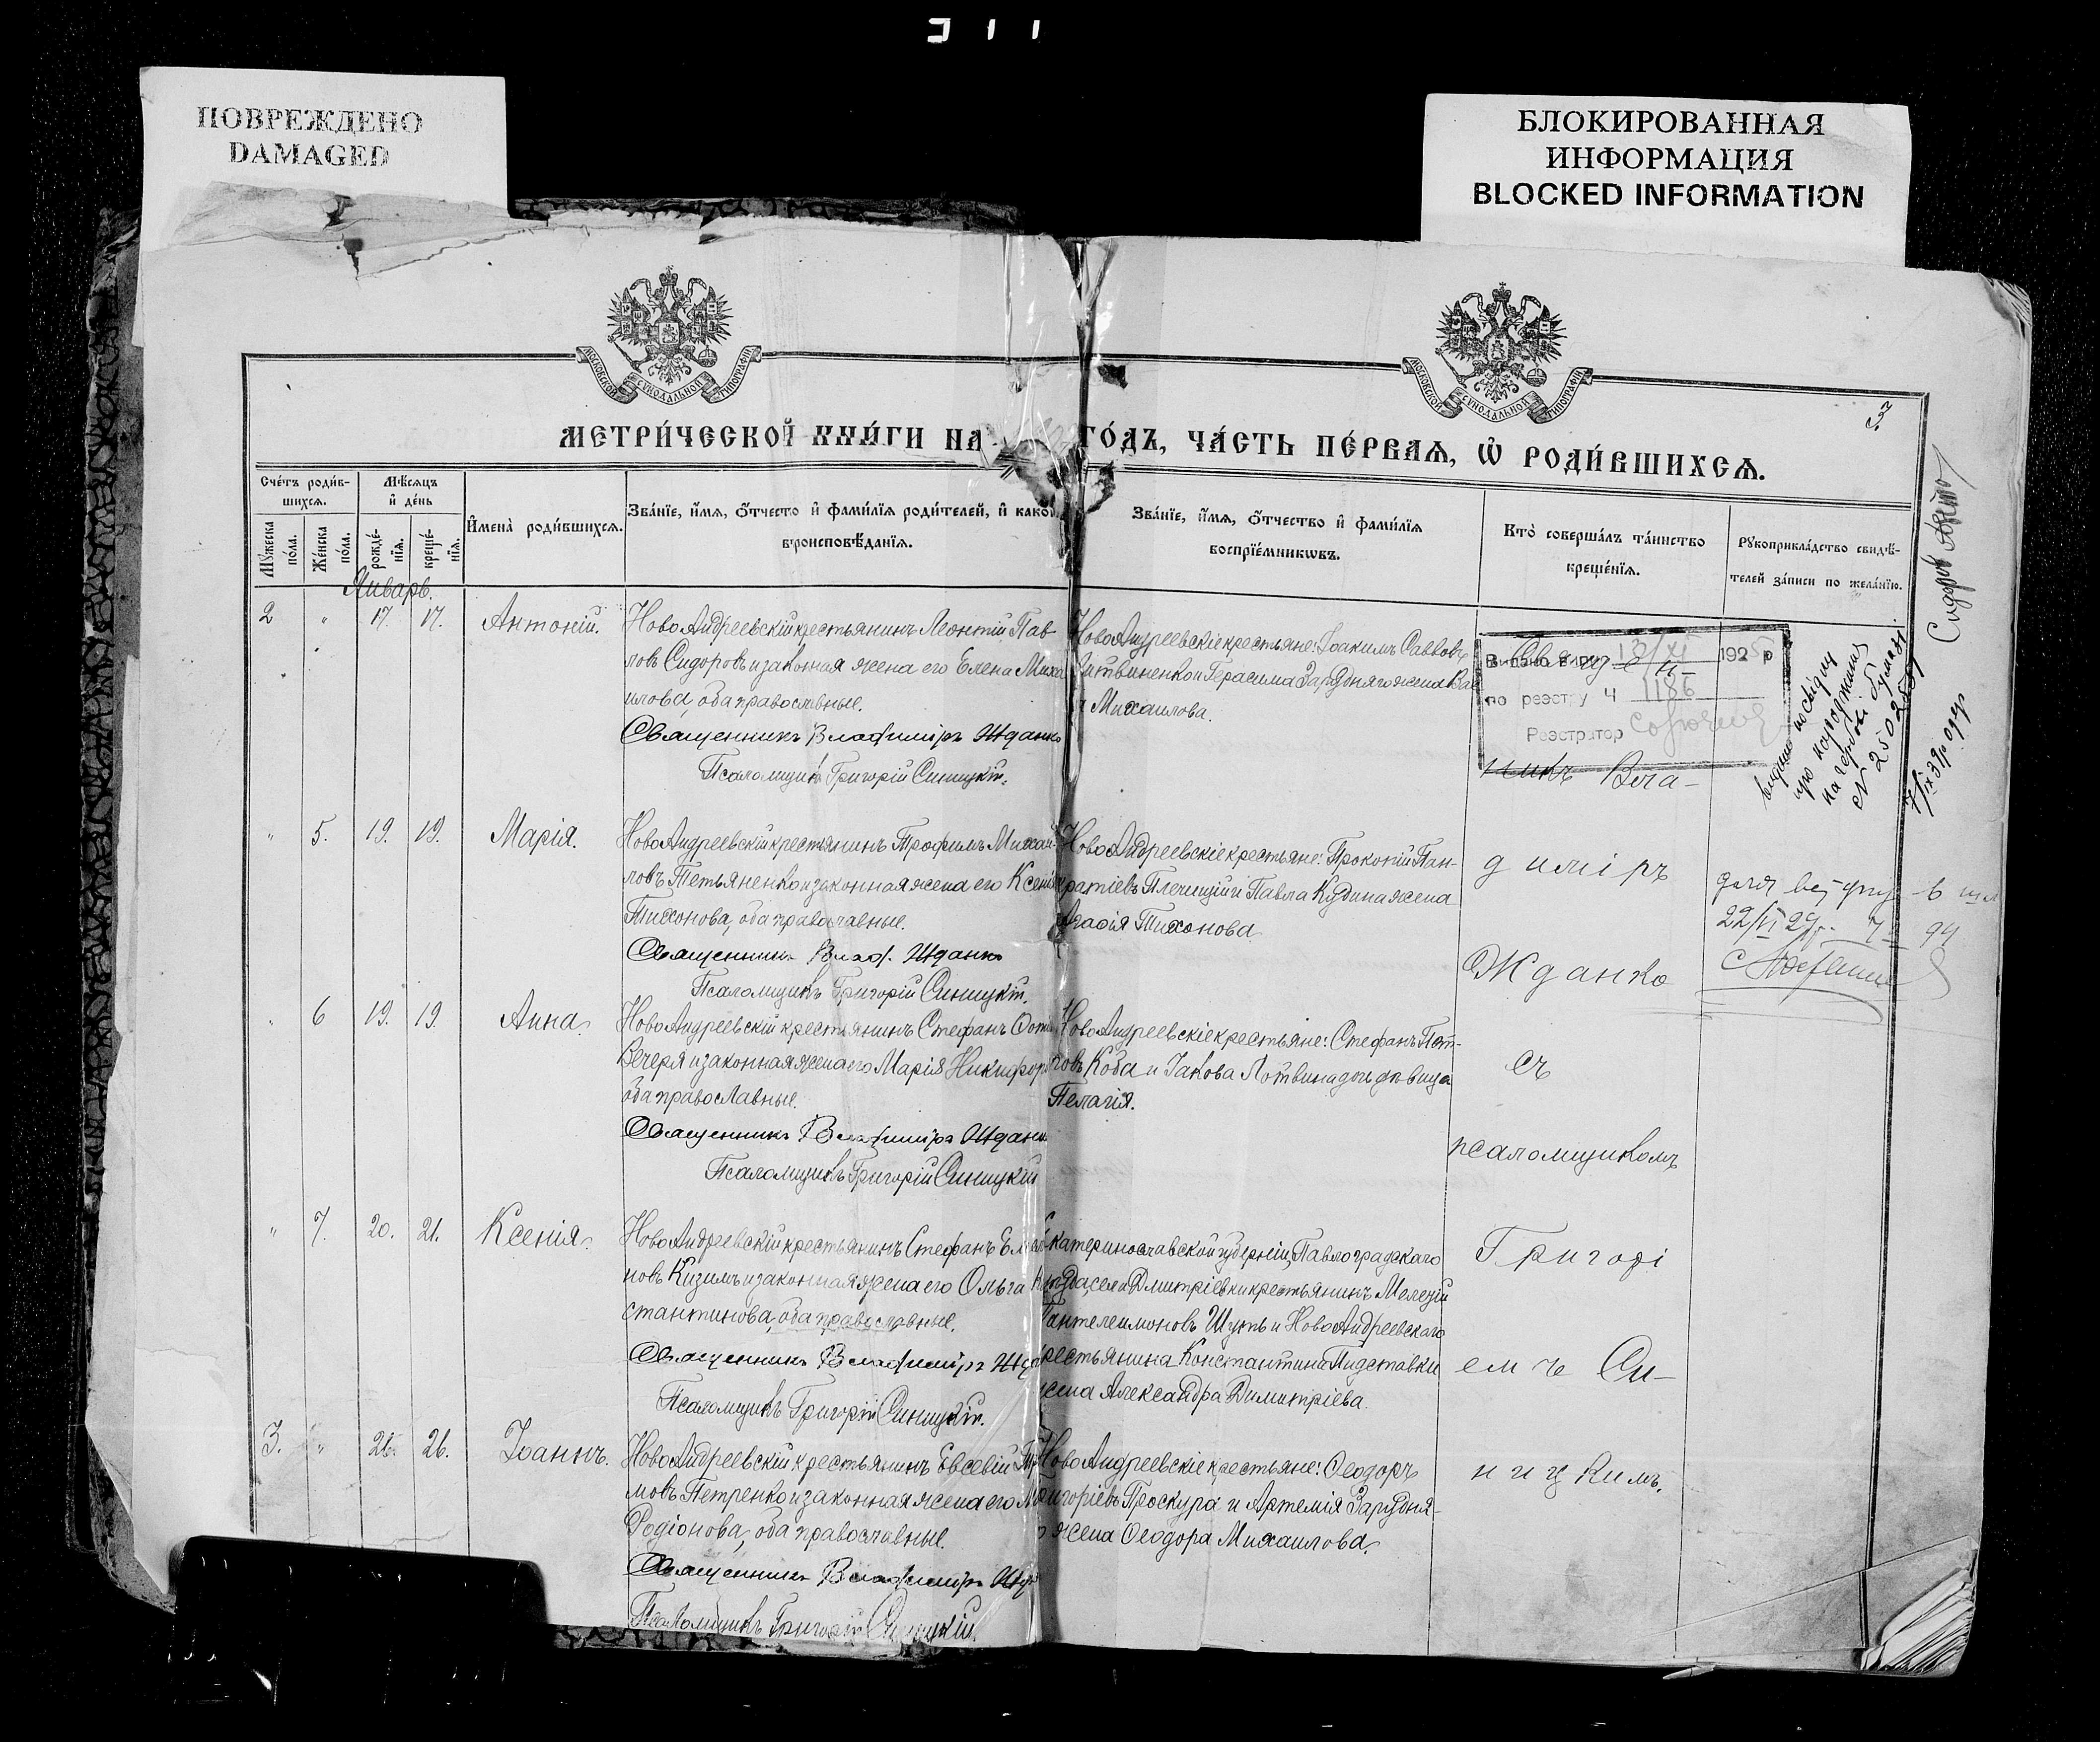 ПОВРЕЖДЕНО
DAMAGED
БЛОКИРОВАННАЯ
ИНФОРМАЦИЯ
BLOCKED INFORMATION
МОСКОВСКОЙ СѴНОДАЛЬНОЙ ТИПОГРАФІИ
МОСКОВСКОЙ СѴНОДАЛЬНОЙ ТИПОГРАФІИ
3
МЕТРИ́ЧЕСКОЙ КНИ́ГИ НА ГО́ДЪ, ЧА́СТЬ ПЕ́РВАѦ, Ѡ РОДИ́ВШИХСѦ.
Сче́тъ роди́в-
шихсѧ.
Мꙋжеска по́ла.
Же́нска по́ла.
Мѣ́сѧцъ
и҆ де́нь
рожде́-нїѧ.
креще́-нїѧ.
И҆мена̀ роди́вшихсѧ.
Зва́нїе, и҆́мѧ, о҆́тчесто и҆ фами́лїѧ роди́телей, и҆ како́
вѣроисповѣ́данїѧ.
Зва́нїе, и҆́мѧ, о҆́тчество и҆ фами́лїѧ
воспрїе́мникѡвъ.
Кто̀ соверша́лъ та́инство
креще́нїѧ.
Рꙋкоприкла́дство свидѣ́-
телей за́писи по жела́нїю.
Январь.
2 " 17. 17. Антоній.
НовоАндреевскій крестьянинъ Леонтій Пав-
ловъ Сидоровъ и законная жена его Елена Миха
илова, оба православные.
Священникъ Владиміръ Жданко
Псаломщикъ Григорій Синицкій.
НовоАндреевскіе крестьяне: Іоакимъ Саввовъ
Литвиненко и Герасима Заруднаго жена Вас
Михаилова.
Видано вип 13/XI 1925 р
по реєстру Ч 1186
Реєстратор
Свящ
никъ Вла-
видано посвідку
про народження
на гербовій бумазі
N 250257
Сидоров Антон
" 5. 19. 19. Марія.
НовоАндреевскій крестьянинъ Трофимъ Михаи-
ловъ Тетьяненко и законная жена его Ксенія
Тихонова, оба православные.
Священникъ Влад. Жданко
Псаломщикъ Григорій Синицкій.
НовоАндреевскіе крестьяне: Прокопій Пан-
кратіевъ Плечицій и Павла Кудина жена
Агафія Тихонова
диміръ
Жданко
22/VI 29р.
" 6 19. 19. Анна.
НовоАндреевскій крестьянинъ Стефанъ
Вечеря и законная жена его Марія Никифор
оба православные.
Священникъ Владиміръ Жданко
Псаломщикъ Григорій Синицкій
НовоАндреевскіе крестьяне: Стефанъ Пет-
ровъ Коба и Іакова Лотвина дочь дѣвица
Пелагія.
съ
псаломщикомъ
" 7. 20. 21. Ксенія.
НовоАндреевскій крестьянинъ Стефанъ
новъ Кизимъ и законная жена его Ольга Кон
стантинова, оба православные.
Священникъ Владиміръ Жда
Псаломщикъ Григорій Синицкій.
Екатеринославской губерніи, Павлоградскаго
уѣзда, села Дмитріевки крестьянинъ Мелетій
Пантелеимоновъ Шуть и НовоАндреевскаго
крестьянина Константина Підставки
жена Александра Димитріева.
Григорі
емъ Си-
3. " 26. 26. Іоаннъ.
НовоАндреевскій крестьянинъ Евсевій
мовъ Петренко и законная жена его
Родіонова, оба православные.
Священникъ Владиміръ Жда
Псаломщикъ Григорій Синицкій.
НовоАндреевскіе крестьяне: Ѳеодоръ
Григоріевъ Проскура и Артемія Заруднa-
го жена Ѳеодора Михаилова.
ницкимъ.